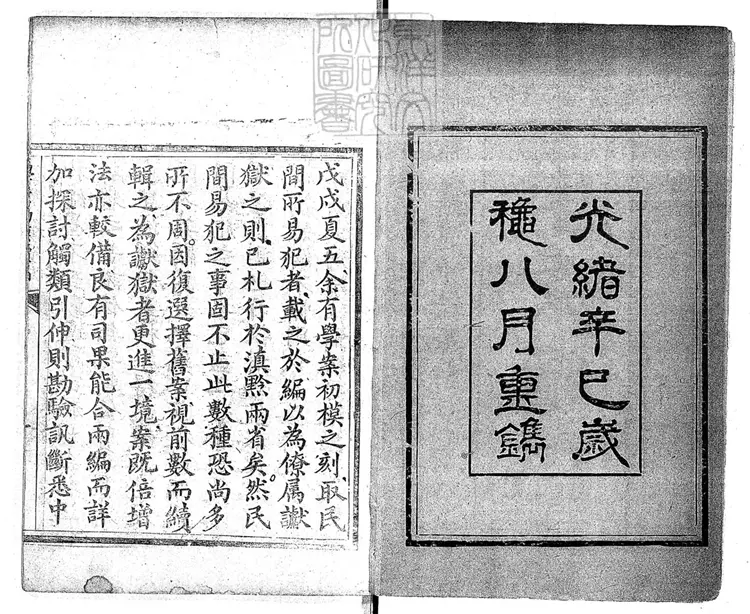 光緒辛巳歲
穐八月重鐫
戊戌夏五余有學案初模之刻取民
間所易犯者載之於編以為僚属讞
獄之則已札行於滇黔兩省矣然民
間易犯之事固不止此數種恐尚多
所不周因復選擇舊案視前數而續
輯之為讞獄者更進一境案既倍增
法亦較備良有司果能合兩編而詳
加探討觸類引伸則勘驗訊斷悉中